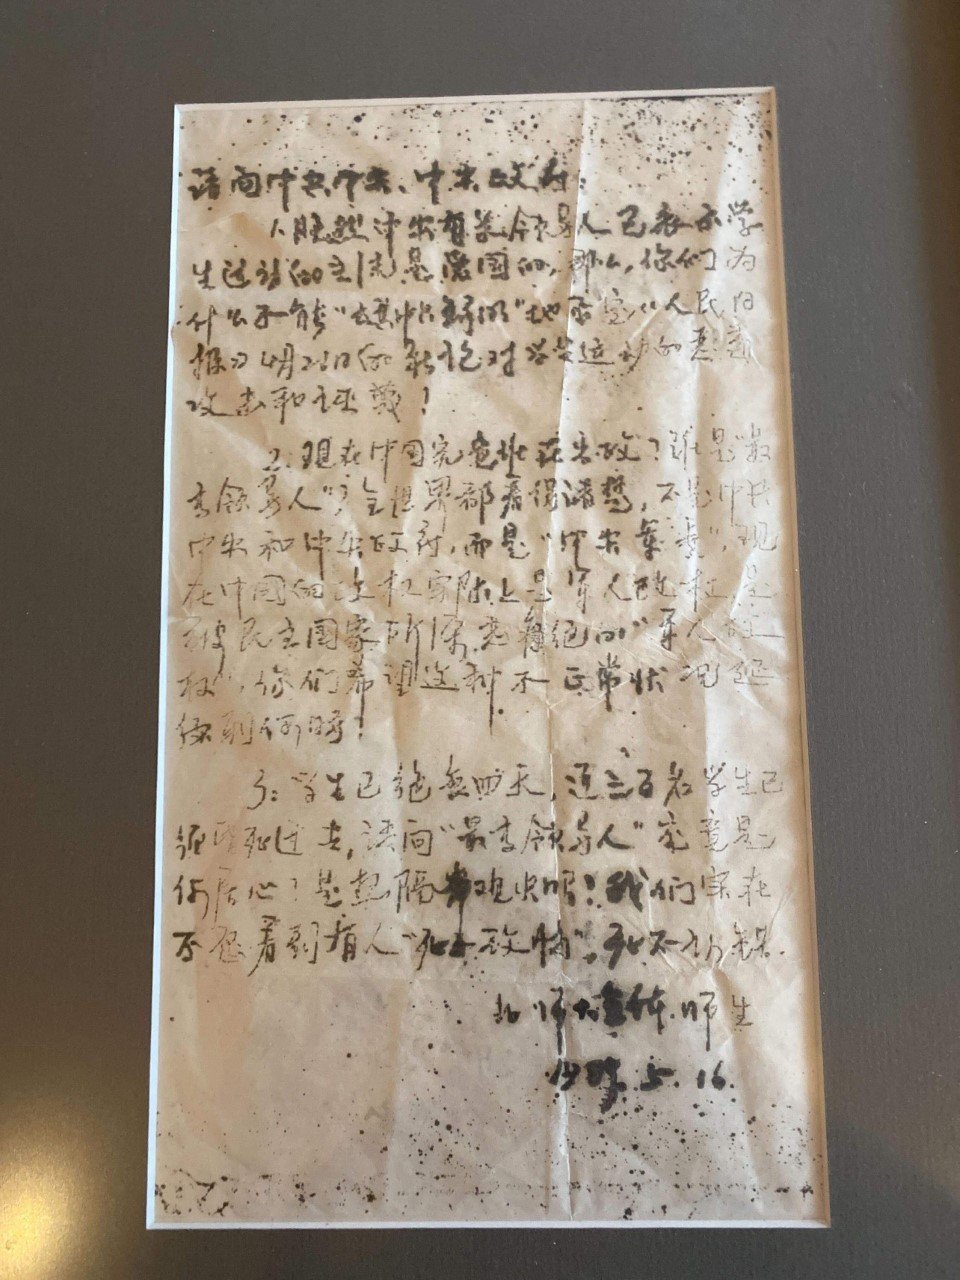 请问中共中央、中央政府：
1、既然中央有关领导人已表示学
生运动的主流是爱国的，那么，你们为
什么不能"旗帜鲜明"地否定《人民日
报》4月26日的社论对学生运动的恶意
攻击和诬蔑！
2、现在中国究竟谁在当政？谁是"最
高领导人"？全世界都看得清楚，不是中共
中央和中央政府，而是"中央军委"，现
在中国的政权实际上是军人政权，是
被民主国家所深恶痛绝的"军人政
权"，你们希望这种不正常状况延
续到何时？
3、学生已绝食四天，近三百名学生已
昏死过去，请问"最高领导人"究竟是
何居心？是想隔岸观火吗？我们实在
不忍看到有人"死不改悔"，死不认错。
北师大全体师生
1989.5.16.